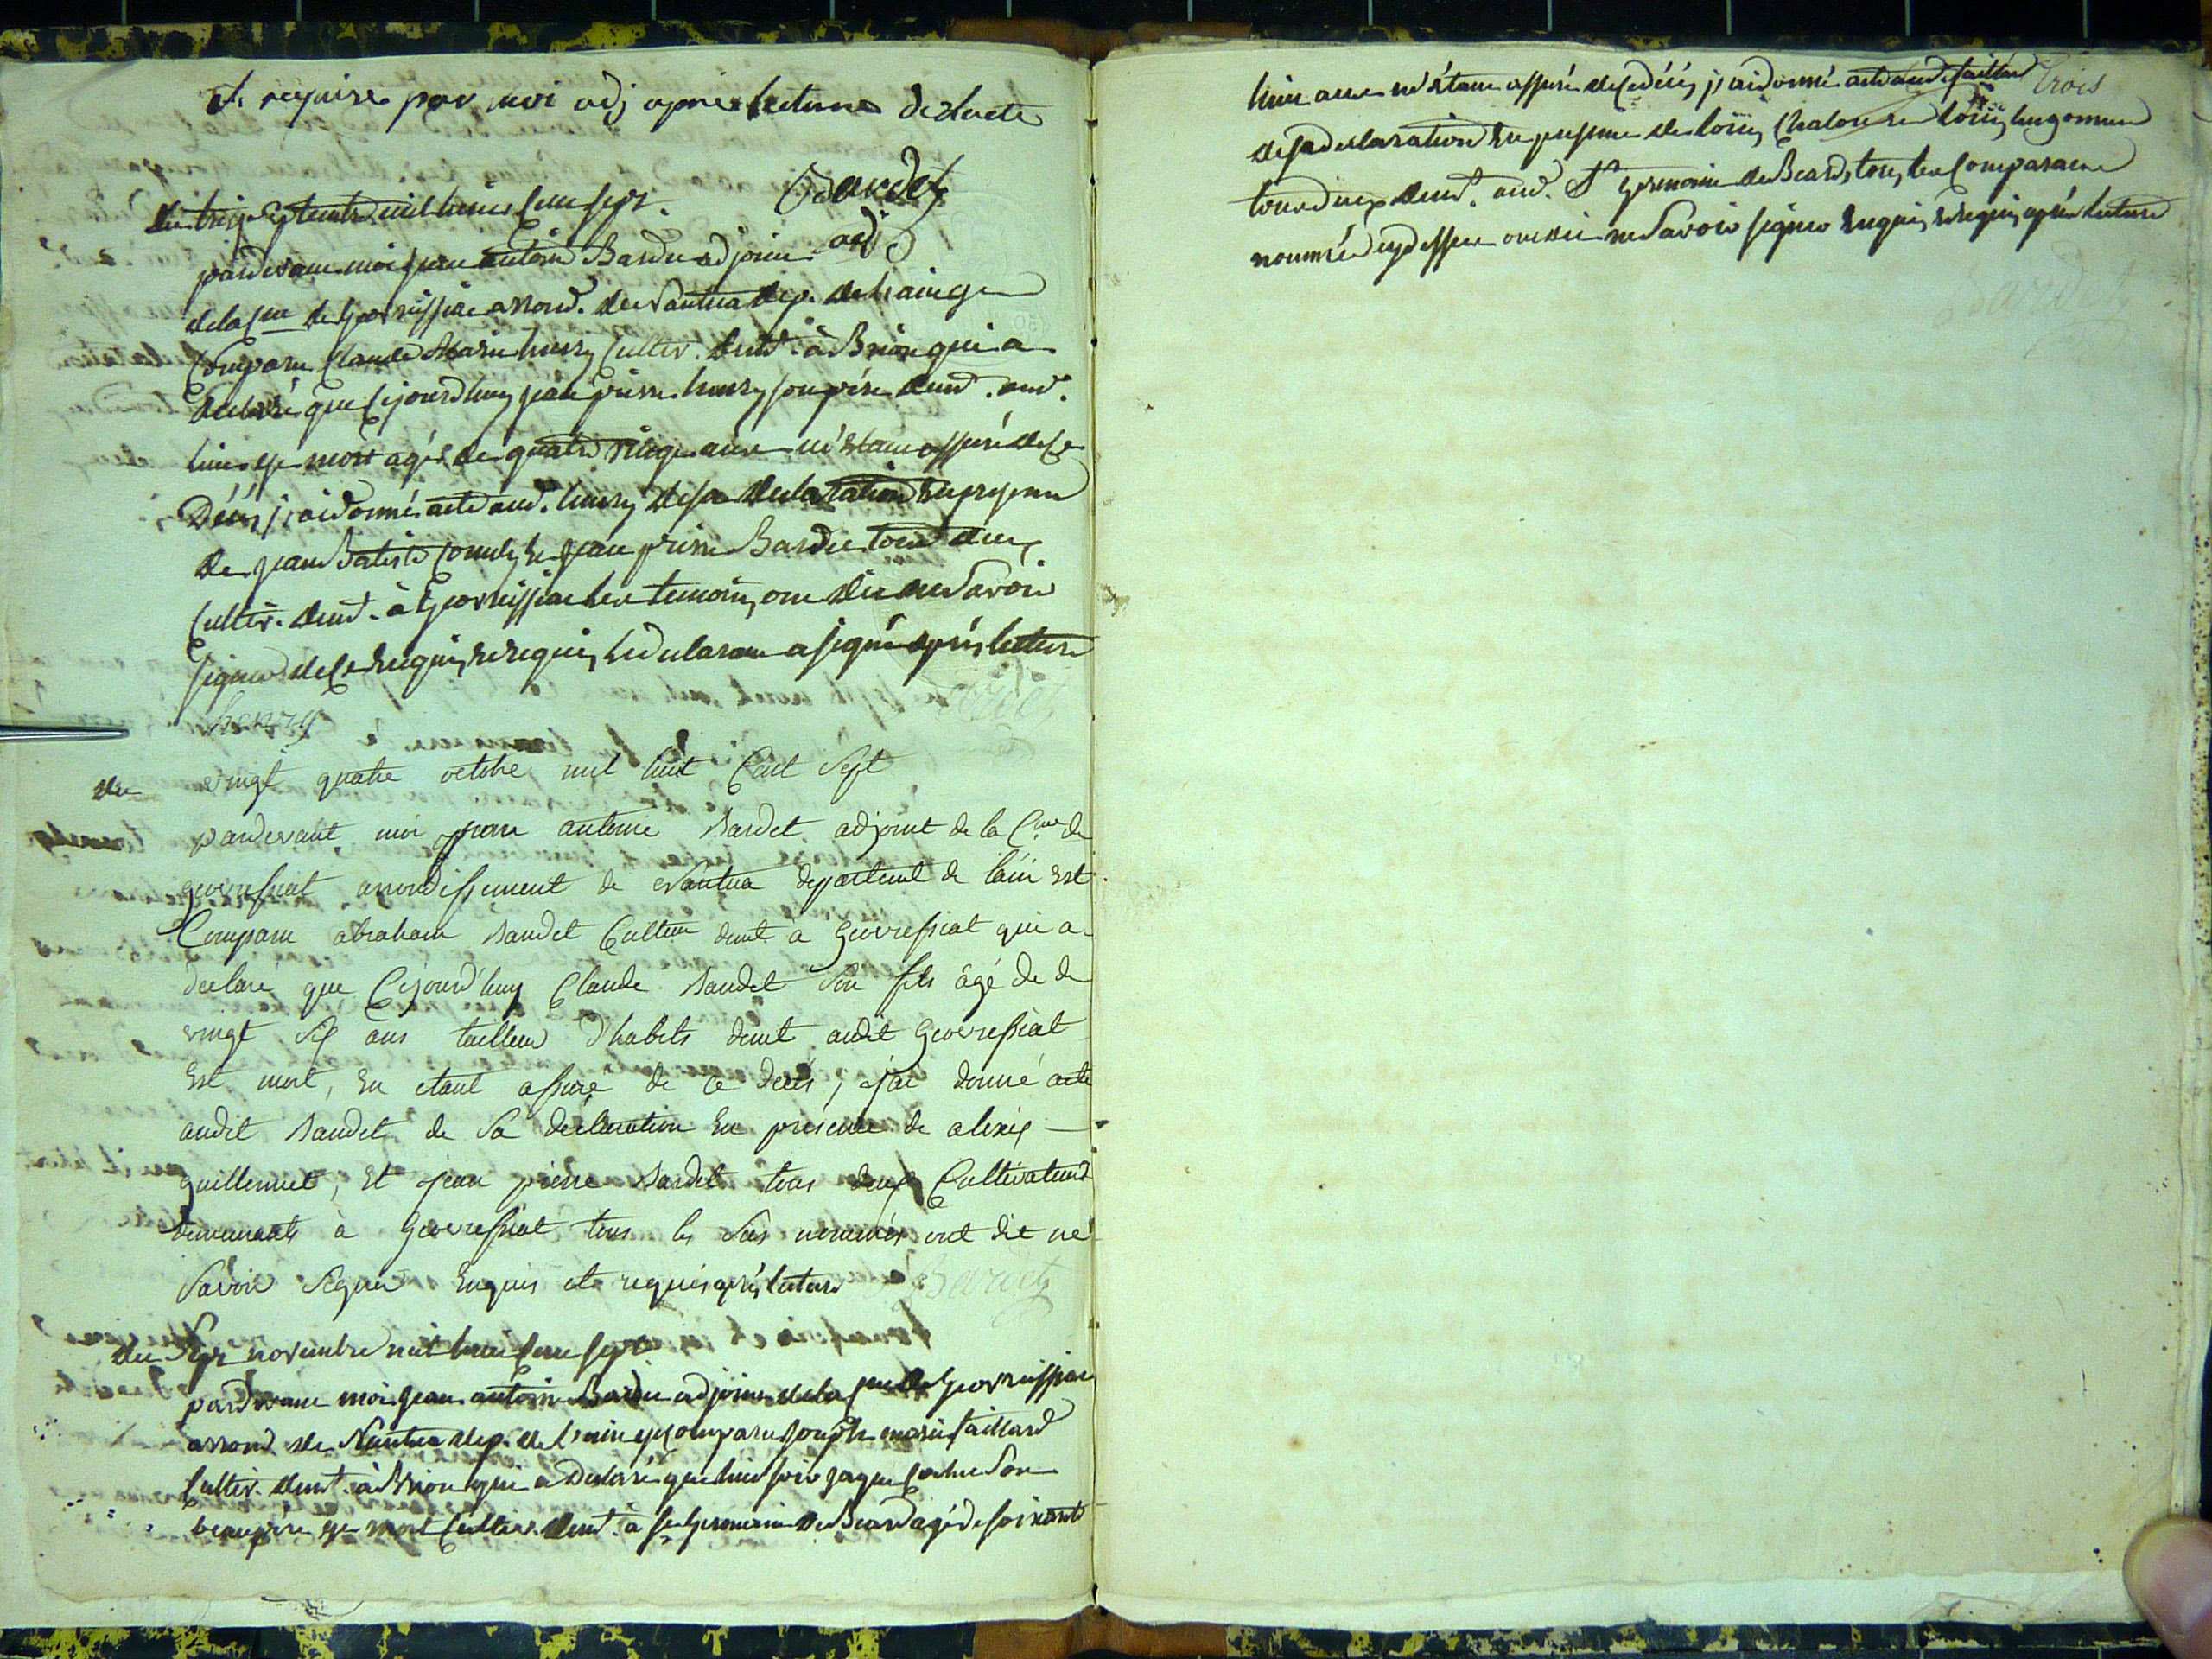 et requise par moi adj apres lecture de lacte
Bardet
adj
du treize septembre mil huit cent sept.
pardevant moi jean antoine Bardet adjoint
de la cne de geovreissiat arrond. de Nantua dep. de l'ain est
Comparu Claude Marie henry Cultiv. demt. à Brion qui a
declaré que cejourdhuy jean pierre henry son père demt. aud.
lieu est mort agé de quatre vingt ans m'étant assuré de ce
Décés j'ai donné acte aud. henry de sa declaration en presence
de jean Batiste et jean pierre Bardet tous deux
Cultiv. demt. à geovreissiat les temoins ont dit ne savoir
signer de ce enquis et requis le declarant a signé après lecture
henry Bardet
du vingt quatre octobre mil huit Cent Sept
pardevant moi jean antoine Bardet adjoint de la Cne de
geovressiat arrondissement de Nantua departemt de l'ain est
Comparu abraham Baudet Cultiv demt à Geovressiat qui a
déclaré que Cejourd'huy Claude Baudet Son fils âgé de de
vingt Six ans tailleur d'habits demt audit Geovressiat
Est mort, En etant assuré de ce décès, j'ai donné acte
audit Baudet de Sa déclaration En présence de alexis
guillermet, Et jean pierre Bardet tous deux Cultivateurs
demeurants à Geovressiat tous les Sus nommés ont dit ne
Savoir Signer Enquis et requis après lecture Bardet
du Sept novembre mil huit cent sept
pardevant moi jean antoine Bardet adjoint de la cne de Geovreissiat
arrond. de Nantua dep. de l'ain est comparu joseph marie faillard
Cultiv. demt. à Brion qui a Declaré que hier soir jaque Son
beaupère est mort Cultiv. demt. à St germain de Beard agé de soixante
huit ans m'étant assuré de ce décés j'ai donné acte aud. faillard trois
de sa declaration en presence de louis Chaloin et louis hugonnet
tous deux demt. aud. St germain de Beard, tous les Comparants
nommés cydessus ont dit ne Savoir signer enquis et requis après lecture
Bardet